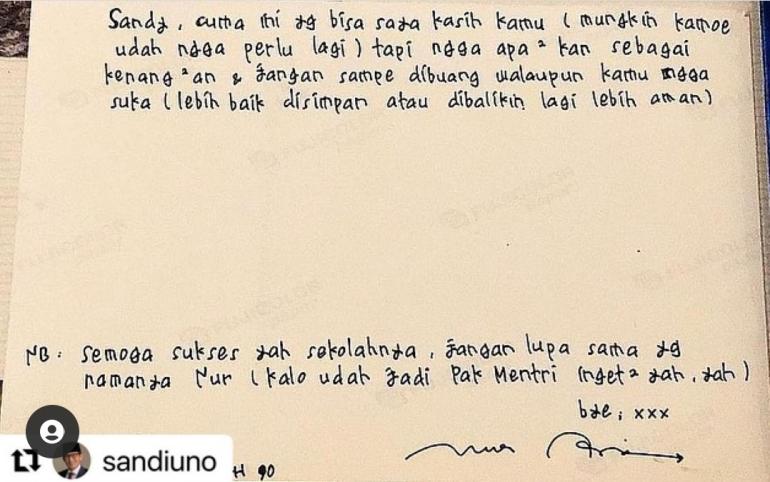 Sandy, cuma ini yg bisa saya kasih kamu (mungkin kamoe
udah ngga perlu lagi) tapi ngga apa² kan sebagai
kenang²an & jangan sampe dibuang walaupun kamu ngga
suka (lebih baik disimpan atau dibalikin lagi lebih aman)
FUJICOLOR
FUJICOLOR
FUJICOLOR
NB: Semoga sukses yah sekolahnya, jangan lupa sama yg
namanya Nur (kalo udah jadi Pak Mentri inget² yah, yah)
bye, xxx
sandiuno
H 90